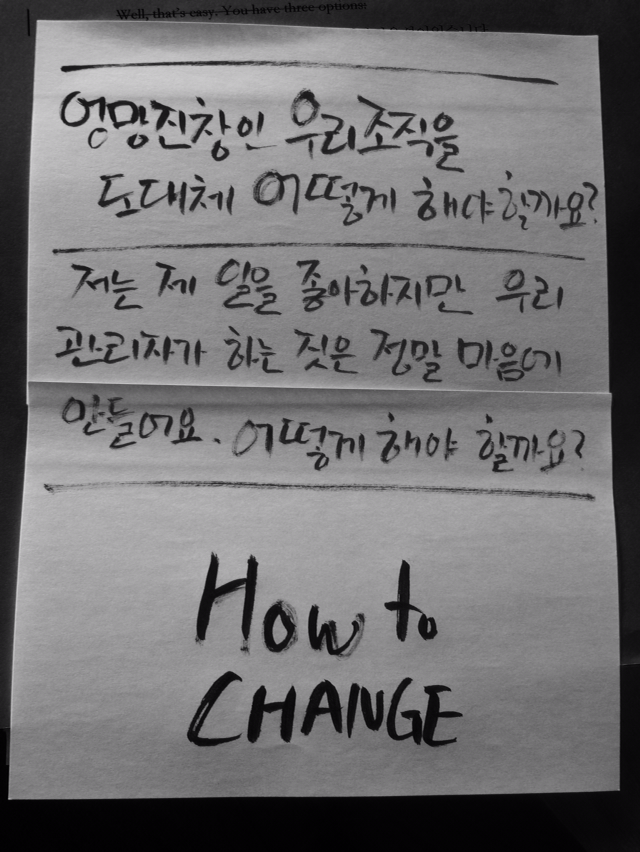 Well, that's easy. You have three options:
엉망진창인 우리조직을
도대체 어떻게 해야할까요?
저는 제 일을 좋아하지만 우리
관리자가 하는 짓은 정말 마음에
안들어요. 어떻게 해야 할까요?
How to
CHANGE